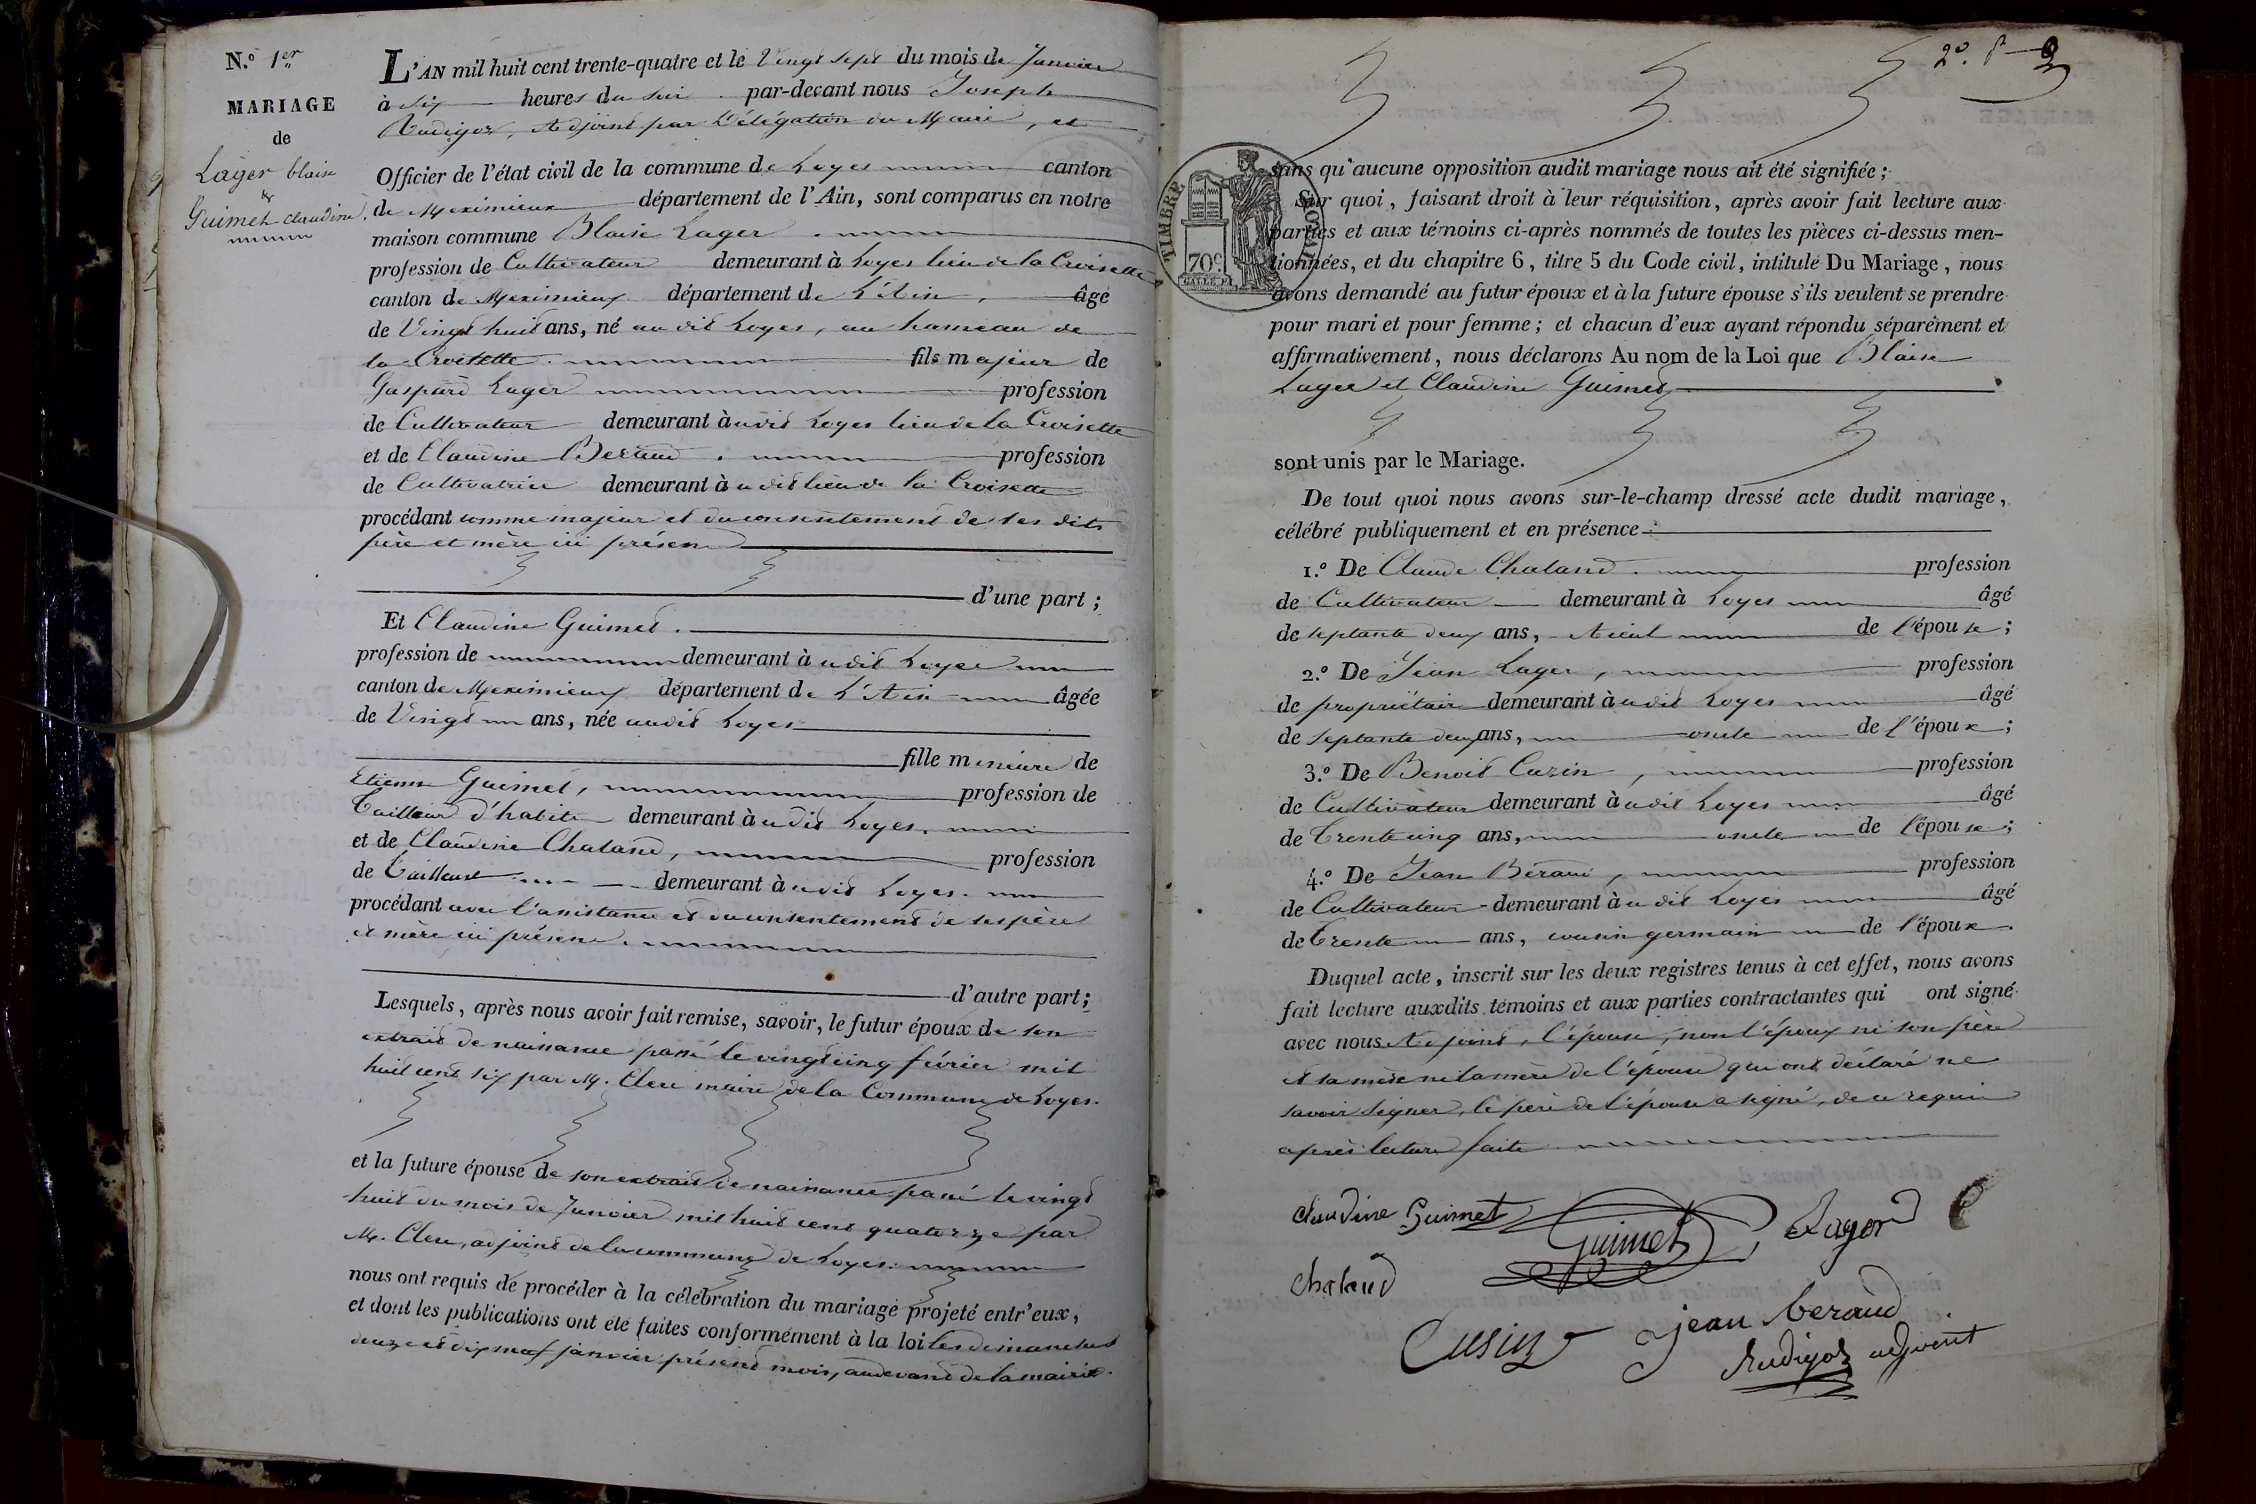 N.º 1er
MARIAGE
de
Lager blaise
&
Guimet claudine
L'AN mil huit cent trente-quatre et le Vingt sept du mois de Janvier
à six heures du soir. par-devant nous Joseph
Rudigoz, Adjoint par Délégation du Maire, et
Officier de l'état civil de la commune de Loyes canton
de Meximieux département de l'Ain, sont comparus en notre
maison commune Blaise Lager.
profession de Cultivateur demeurant à Loyes lieu de la Croisette
canton de Meximieux département de L'Ain, âgé
de Vingt huit ans, né au dit Loyes, au hameau de
la Croisette. fils majeur de
Gaspard Lager profession
de Cultivateur demeurant à udit Loyes lieu de la Croisette
et de Claudine Beraud. profession
de Cultivatrice demeurant à u dit lieu de la Croisette
procédant comme majeur et du consentement de ses dits
père et mère ici présens
d'une part ;
Et Claudine Guimet.
profession de demeurant à udit Loyes
canton de Meximieux département de L'Ain âgée
de Vingt ans, née audit Loyes
fille mineure de
Etienne Guimet, profession de
Tailleur d'habits demeurant à udit Loyes.
et de Claudine Chaland, profession
de Tailleuse demeurant à udit Loyes.
procédant avec l'assistance et du consentement de ses père
et mère ici présens.
d'autre part ;
Lesquels, après nous avoir fait remise, savoir, le futur époux de son
extrait de naissance passé le vingt cinq février mil
huit cent six par M. Clerc maire de la Commune de Loyes.
et la future épouse de son extrait de naissance passé le vingt
huit du mois de Janvier mil huit cent quatorze par
M. Clerc, adjoint de la commune de Loyes.
nous ont requis de procéder à la célébration du mariage projeté entr'eux,
et dont les publications ont été faites conformément à la loi les dimanches
douze et dix neuf janvier présent mois, au devant de la mairie.
2º.
TIMBRE ROYAL
70c
sans qu'aucune opposition audit mariage nous ait été signifiée ;
Sur quoi, faisant droit à leur réquisition, après avoir fait lecture aux
parties et aux témoins ci-après nommés de toutes les pièces ci-dessus men-
tionnées, et du chapitre 6, titre 5 du Code civil, intitulé Du Mariage, nous
avons demandé au futur époux et à la future épouse s'ils veulent se prendre
pour mari et pour femme ; et chacun d'eux ayant répondu séparément et
affirmativement, nous déclarons Au nom de la Loi que Blaise
Lager et Claudine Guimet
sont unis par le Mariage.
De tout quoi nous avons sur-le-champ dressé acte dudit mariage,
célébré publiquement et en présence
1.º De Claude Chaland. profession
de Cultivateur demeurant à Loyes âgé
de septante deux ans, Aieul de l'épouse ;
2.º De Jean Lager, profession
de propriétaire demeurant à udit Loyes âgé
de septante deux ans, oncle de l'époux ;
3.º De Benoit Cuzin, profession
de Cultivateur demeurant à udit Loyes âgé
de Trente cinq ans, oncle de l'épouse ;
4.º De Jean Béraud, profession
de Cultivateur demeurant à udit Loyes âgé
de Trente ans, cousin germain de l'époux.
Duquel acte, inscrit sur les deux registres tenus à cet effet, nous avons
fait lecture auxdits témoins et aux parties contractantes qui ont signé
avec nous Adjoint, l'épouse, non l'époux ni son père
et sa mère ni la mère de l'épouse qui ont déclaré ne
savoir signer, le père de l'épouse a signé, de ce requis
après lecture faite
claudine Guimet
Guimet
Lager
chaland
Cusin
jean beraud
Rudigoz adjoint